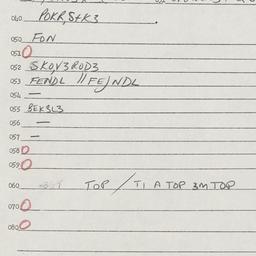 040 POKR,S+K3
050 FON
051 O
052 SKO,V3ROD3
053 FENDL // FEJNDL
054 —
055 BEK3L3
056 —
057 —
058 O
059 O
060 TOP / T1 A TOP 3M TOP
070 O
080 O